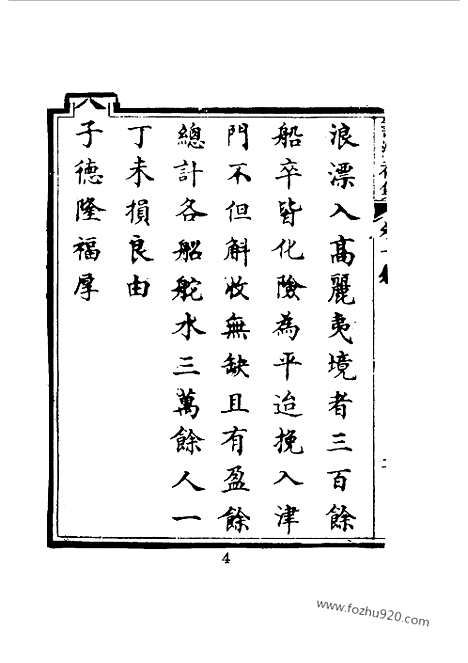 浪漂入高麗夷境者三百餘
船卒皆化險為平迨挽入津
門不但斛收無缺且有盈餘
總計各船舵水三萬餘人一
丁未損良由
子德隆福厚
4
www.fozhu920.com